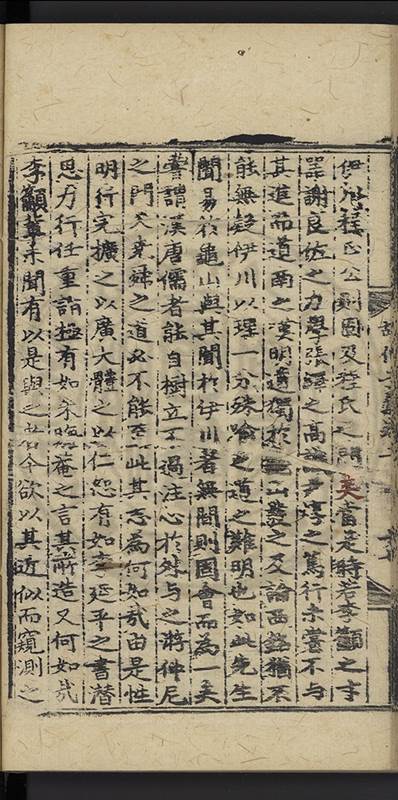 伊川程正公則固及程氏之門矣當是時若李籲之才
器謝良佐之力學張繹之高識尹焞之篤行未嘗不與
其進而道南之嘆明道獨於龜山發之及論西銘猶不
能無疑伊川以理一分殊喻之道之難明也如此先生
聞易於龜山與其聞於伊川者無間則固會而為一矣
嘗謂漢唐儒者能自樹立不過注心於殊与之將仲尼
之門天尭舜之道必不能至此其志為何如哉由是性
明行完擴之以廣大體之以仁恕有如李延平之書潜
思力行任重詣極有如朱晦菴之言其所造又何如哉
李籲輩未聞有以是與之者今欲以其近似而窺測之